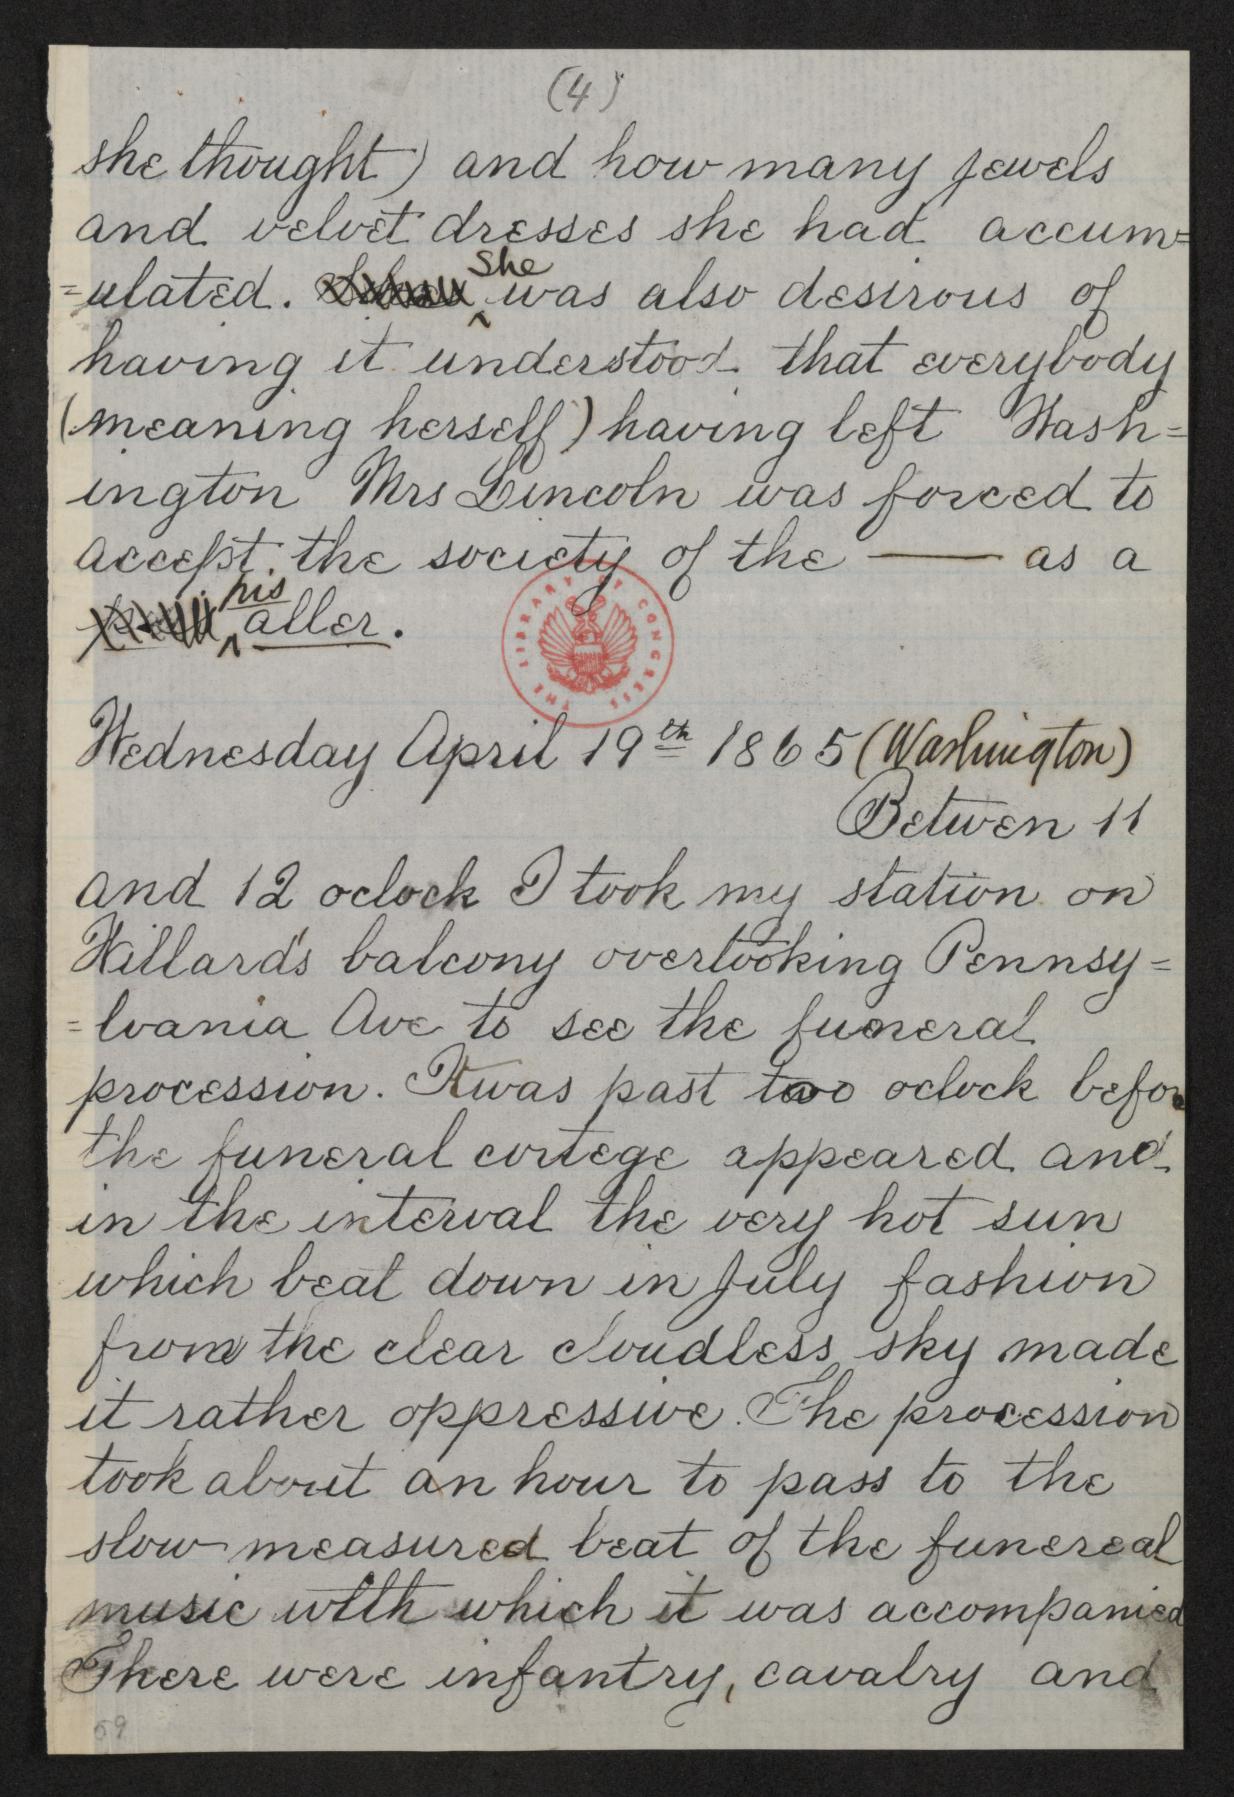 (4)
she thought) and how many jewels
and velvet dresses she had accum=
=ulated. She was also desirous of
having it understood that everybody
(meaning herself) having left Wash=
ington Mrs Lincoln was forced to
accept the society of the —— as a
pis aller.
THE LIBRARY OF CONGRESS
Wednesday April 19th 1865 (Washington)
Betwen 11
and 12 oclock I took my station on
Willard's balcony overlooking Pennsy=
=lvania Ave to see the funeral
procession. It was past two oclock before
the funeral cortege appeared and
in the interval the very hot sun
which beat down in July fashion
from the clear cloudless sky made
it rather oppressive. The procession
took about an hour to pass to the
slow measured beat of the funereal
music with which it was accompanied
There were infantry, cavalry and
59